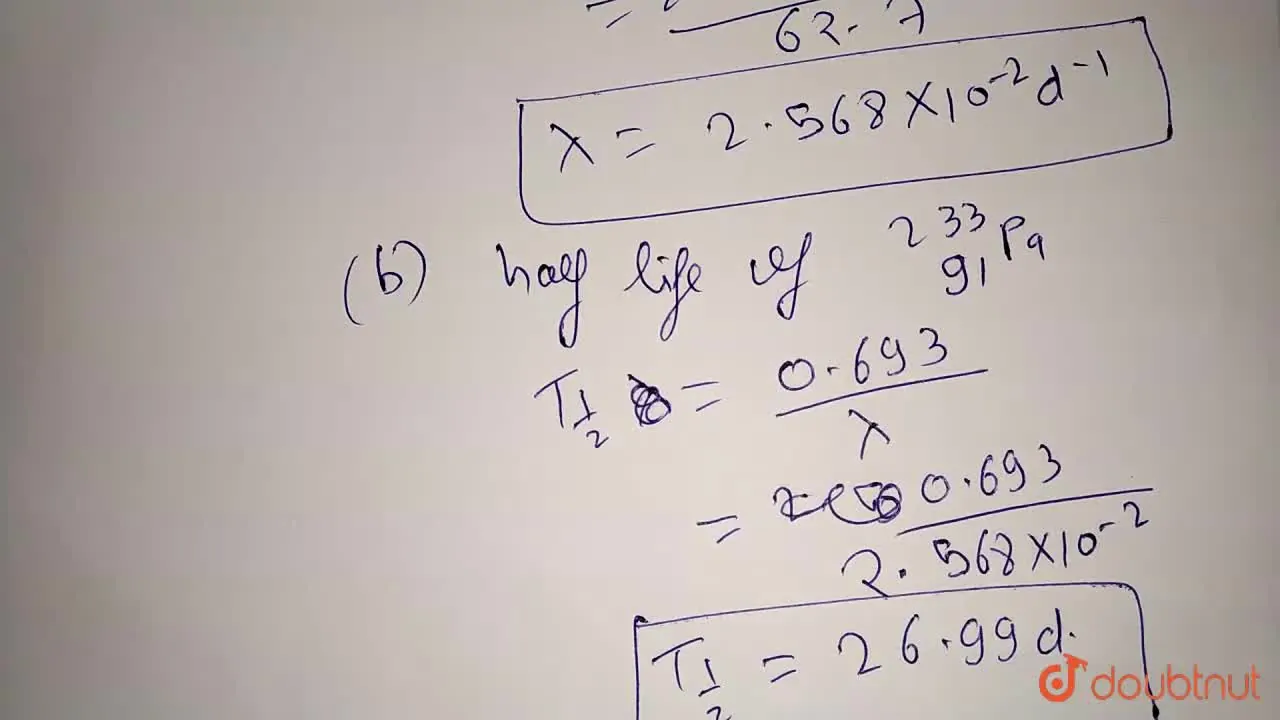 =
62.7
λ = 2.568×10⁻² d⁻¹
(b) half life of ²³³₉₁Pa
T½ = 0.693
λ
= 0.693
2.568×10⁻²
T½ = 26.99 d.
doubtnut